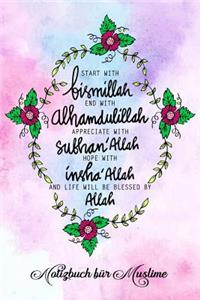 START WITH
bismillah
END WITH
Alhamdulillah
APPRECIATE WITH
subhan'Allah
HOPE WITH
insha'Allah
AND LIFE WILL BE BLESSED BY
Allah
Notizbuch für Muslime